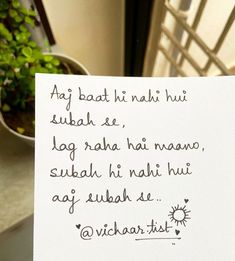 Aaj baat hi nahi hui
subah se,
lag raha hai maano,
subah hi nahi hui
aaj subah se..
@vichaar.tist